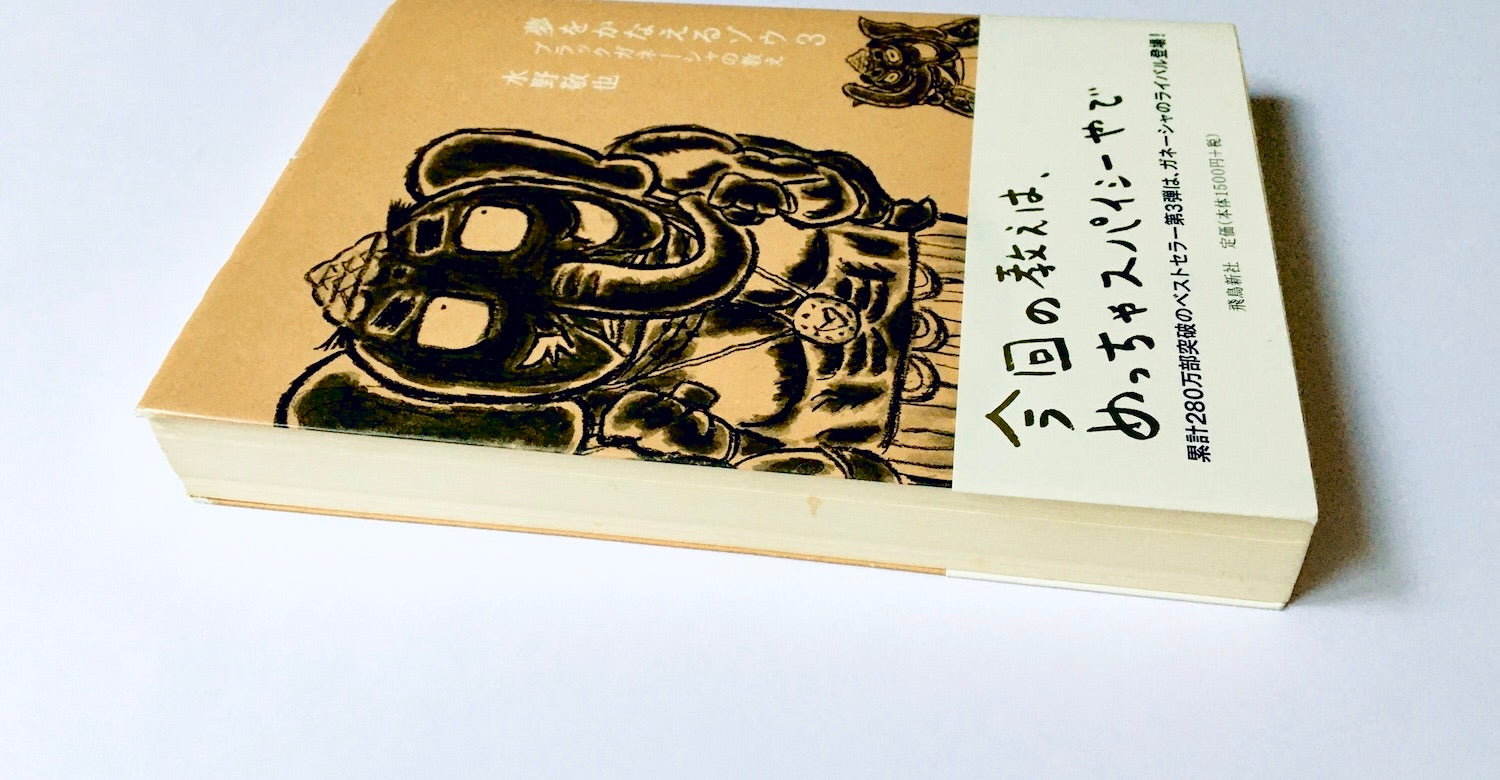 夢をかなえるゾウ 3
ブラックガネーシャの教え
水野敬也
今回の教えは、
めっちゃスパイシーやで
累計280万部突破のベストセラー第3弾は、ガネーシャのライバル登場!
飛鳥新社 定価(本体1500円+税)